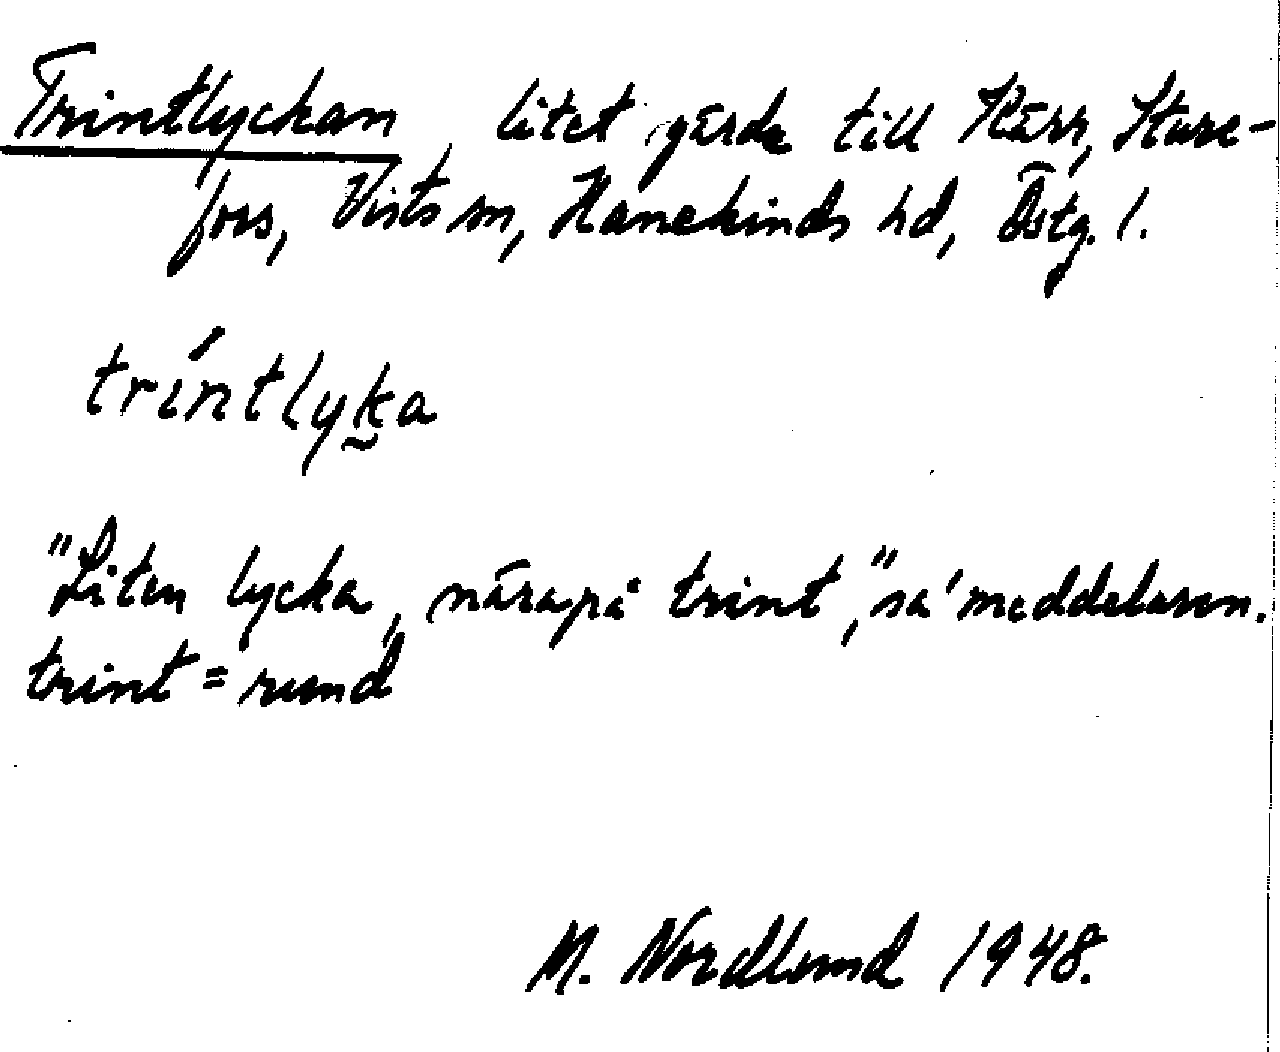 Trintlyckan, litet gärde till Kärr, Sture-
fors, Vists sn, Hanekinds hd, Östg. l.
tríntlyka
"Liten lycka, närapå trint," sa' meddelaren.
trint = rund
M. Nordlund 1948.